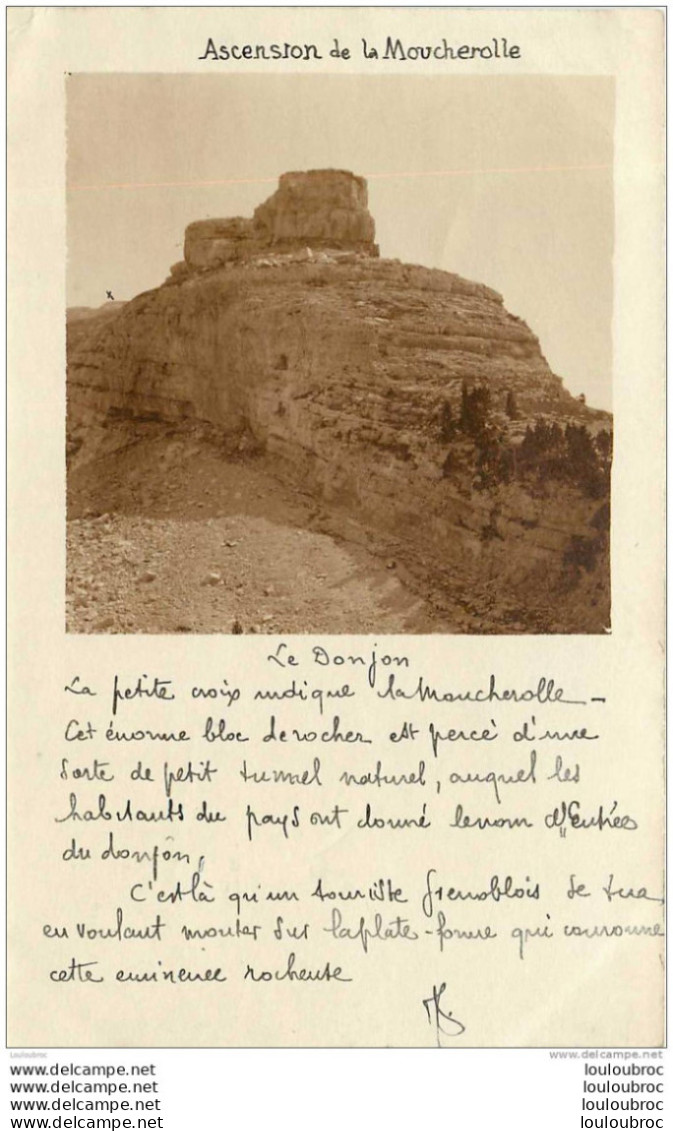 Ascension de la Moucherolle
x
Le Donjon
La petite croix indique la Moucherolle –
Cet énorme bloc de rocher est percé d'une
sorte de petit tunnel naturel, auquel les
habitants du pays ont donné le nom d'"Entrée
du donjon"
C'est là qu'un touriste grenoblois se tua
en voulant monter sur la plate-forme qui couronne
cette eminence rocheuse
Louloubroc
www.delcampe.net
www.delcampe.net louloubroc
www.delcampe.net louloubroc
www.delcampe.net louloubroc
www.delcampe.net louloubroc